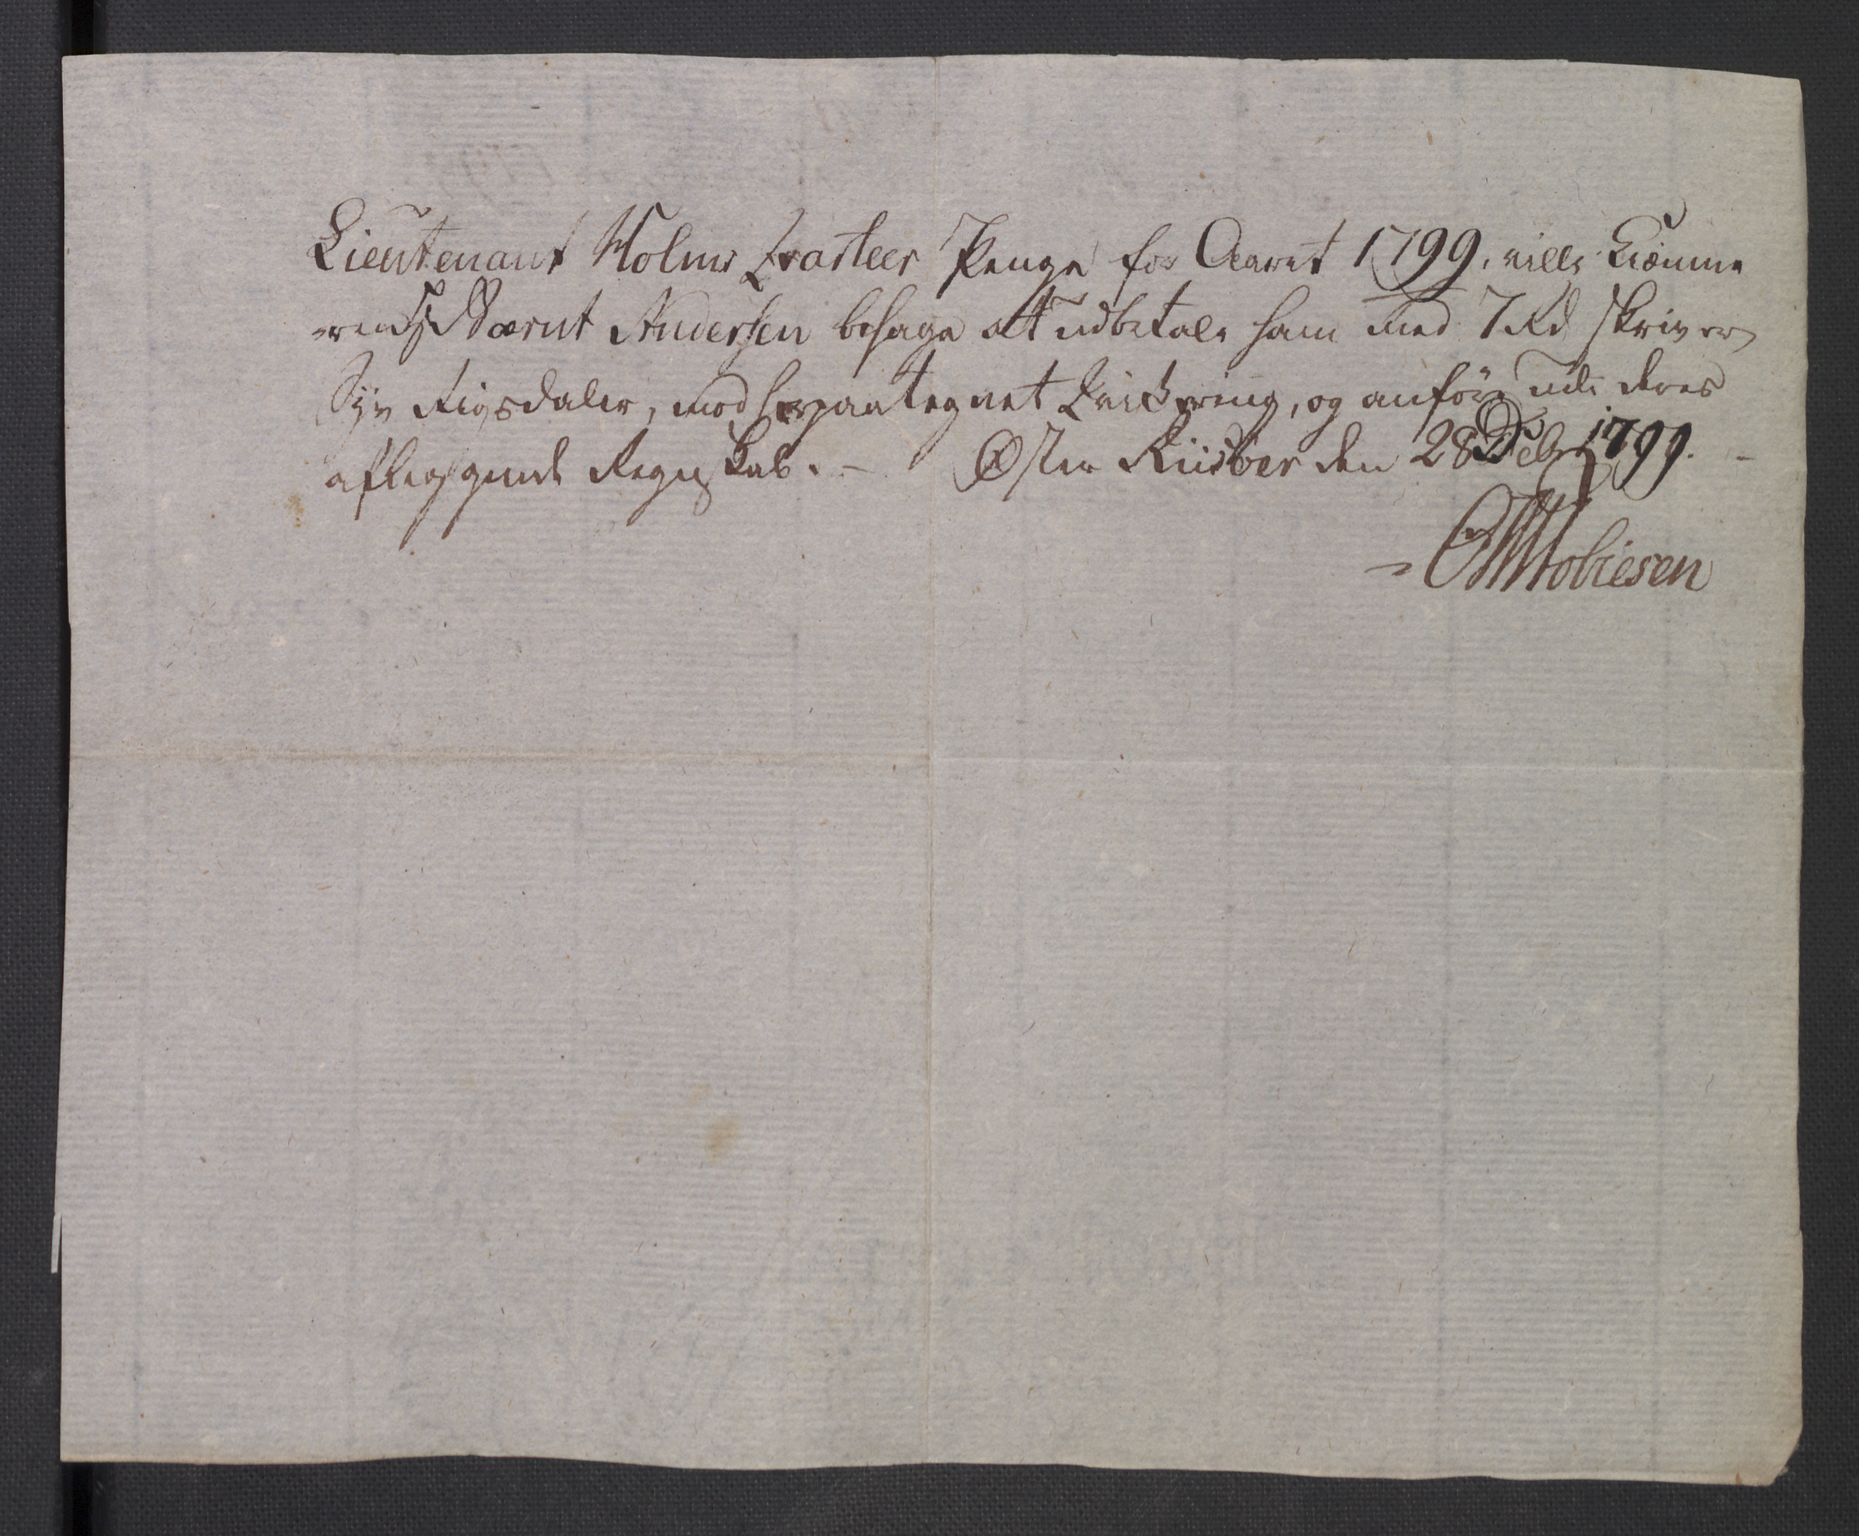 Lieutenant Holms Qvarteer Penge for Aaret 1799, ville Kiæmme
Bærnt Andersen behage at udbetale ham med 7 Rd skriver
Syv Rigsdaler, mod herpaategnet Qvittering, og anføre udi deres
aflæggende Regnskab. — Øster Riisøer den 28 1799. —